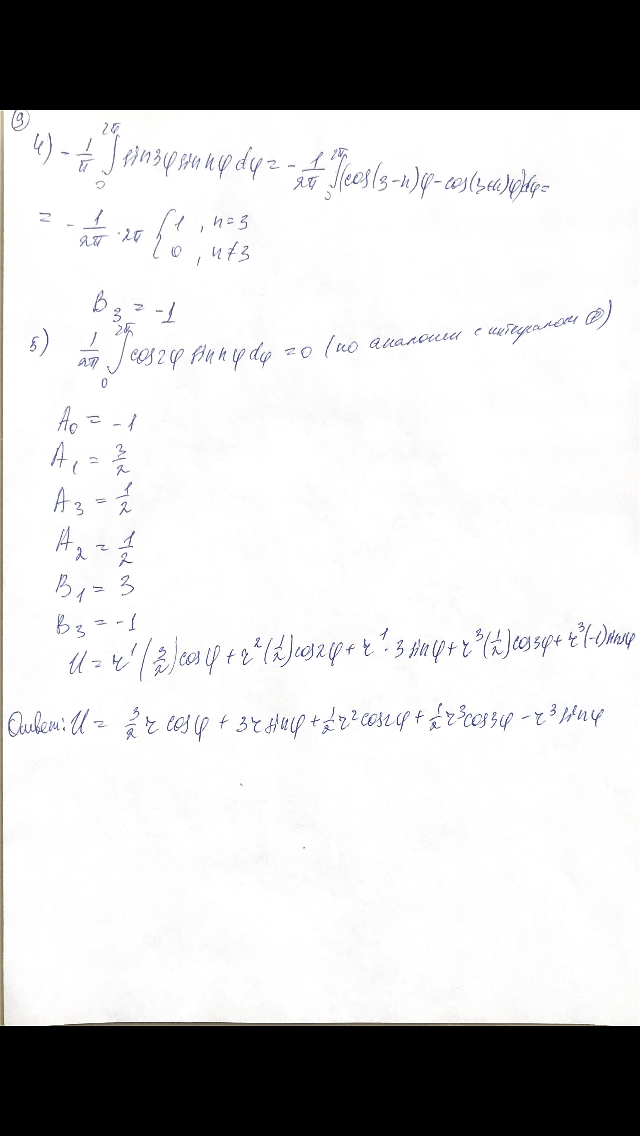 9
4) - 1/π ∫₀^2π sin3φ sin nφ dφ = - 1/2π ∫₀^2π (cos(3-n)φ - cos(3+n)φ)dφ =
= - 1/2π · 2π { 1 , n=3
0 , n≠3
B₃ = -1
5) 1/2π ∫₀^2π cos2φ sin nφ dφ = 0 (по аналогии с интегралом
A₀ = -1
A₁ = 3/2
A₃ = 1/2
A₂ = 1/2
B₁ = 3
B₃ = -1
U = r¹(3/2)cosφ + r²(1/2)cos2φ + r¹·3 sinφ + r³(1/2)cos3φ + r³(-1)sin3φ
Ответ: U = 3/2 r cosφ + 3r sinφ + 1/2 r² cos2φ + 1/2 r³ cos3φ - r³ sinφ